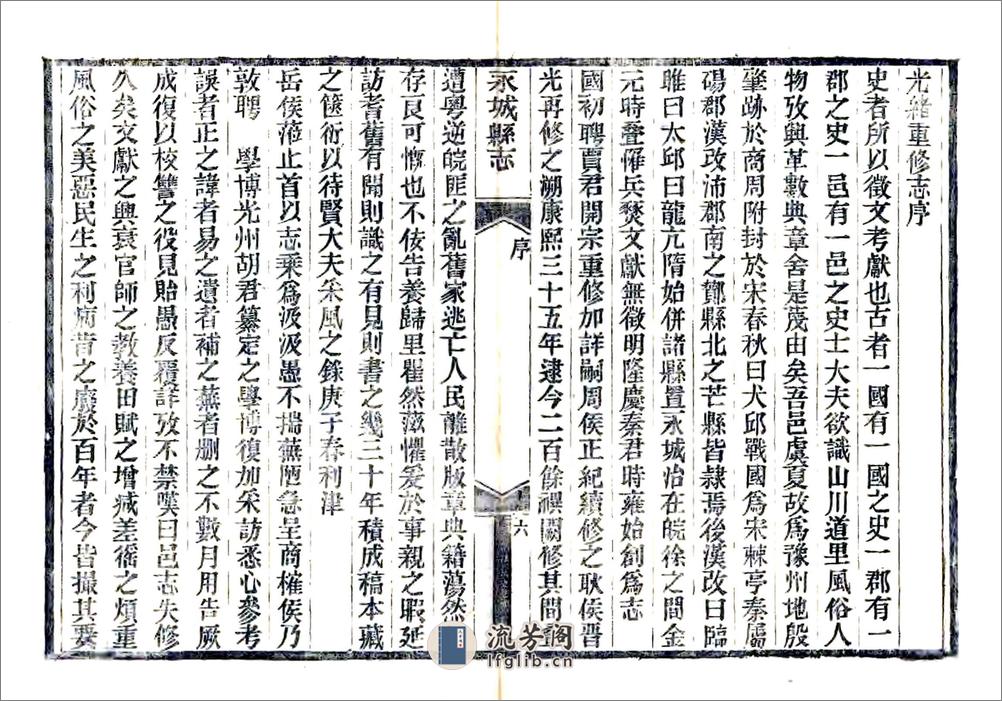 光緒重修志序
史者所以徵文考獻也古者一國有一國之史一郡有一
郡之史一邑有一邑之史士大夫欲識山川道里風俗人
物攷興革數典章舍是蔑由矣吾邑虞夏故爲豫州地殷
肇跡於商周附封於宋春秋曰犬邱戰國爲宋棘亭秦屬
碭郡漢改沛郡南之酇縣北之芒縣皆隸焉後漢改曰臨
睢曰太邱曰龍亢隋始併諸縣置永城治在皖徐之間金
元時疊罹兵燹文獻無徵明隆慶秦君時雍始創爲志
國初聘賈君開宗重修加詳嗣周侯正紀續修之耿侯晋
光再修之溯康熙三十五年逮今二百餘禩闕修其間
永城縣志
序
六
遭粵逆皖匪之亂舊家逃亡人民離散版章典籍蕩然
存良可慨也不佞告養歸里瞿然滋懼爰於事親之暇延
訪耆舊有聞則識之有見則書之幾三十年積成稿本藏
之篋衍以待賢大夫采風之錄庚子春利津
岳侯蒞止首以志乘爲汲汲愚不揣蕪陋急呈商榷侯乃
敦聘 學博光州胡君纂定之學博復加采訪悉心參考
誤者正之諱者易之遺者補之蕪者刪之不數月用告厥
成復以校讐之役見貽愚反覆詳攷不禁嘆曰邑志失修
久矣文獻之興衰官師之教養田賦之增減差徭之煩重
風俗之美惡民生之利病昔之廢於百年者今皆撮其要
流芳閣
lfglib.cn